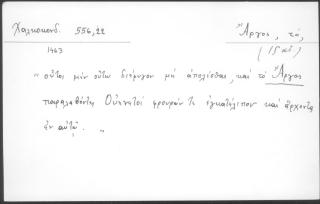 Χαλκοκονδ. 556,22
Ἄργος, τό,
1463
(15 αἰ)
„ οὗτοι μὲν οὕτω διέφυγον μὴ ἀπολέσθαι, καὶ τὸ Ἄργος
παραλαβόντες Οὐενετοὶ φρουράν τε ἐγκατέλιπον καὶ ἄρχοντα
ἐν αὐτῷ. „